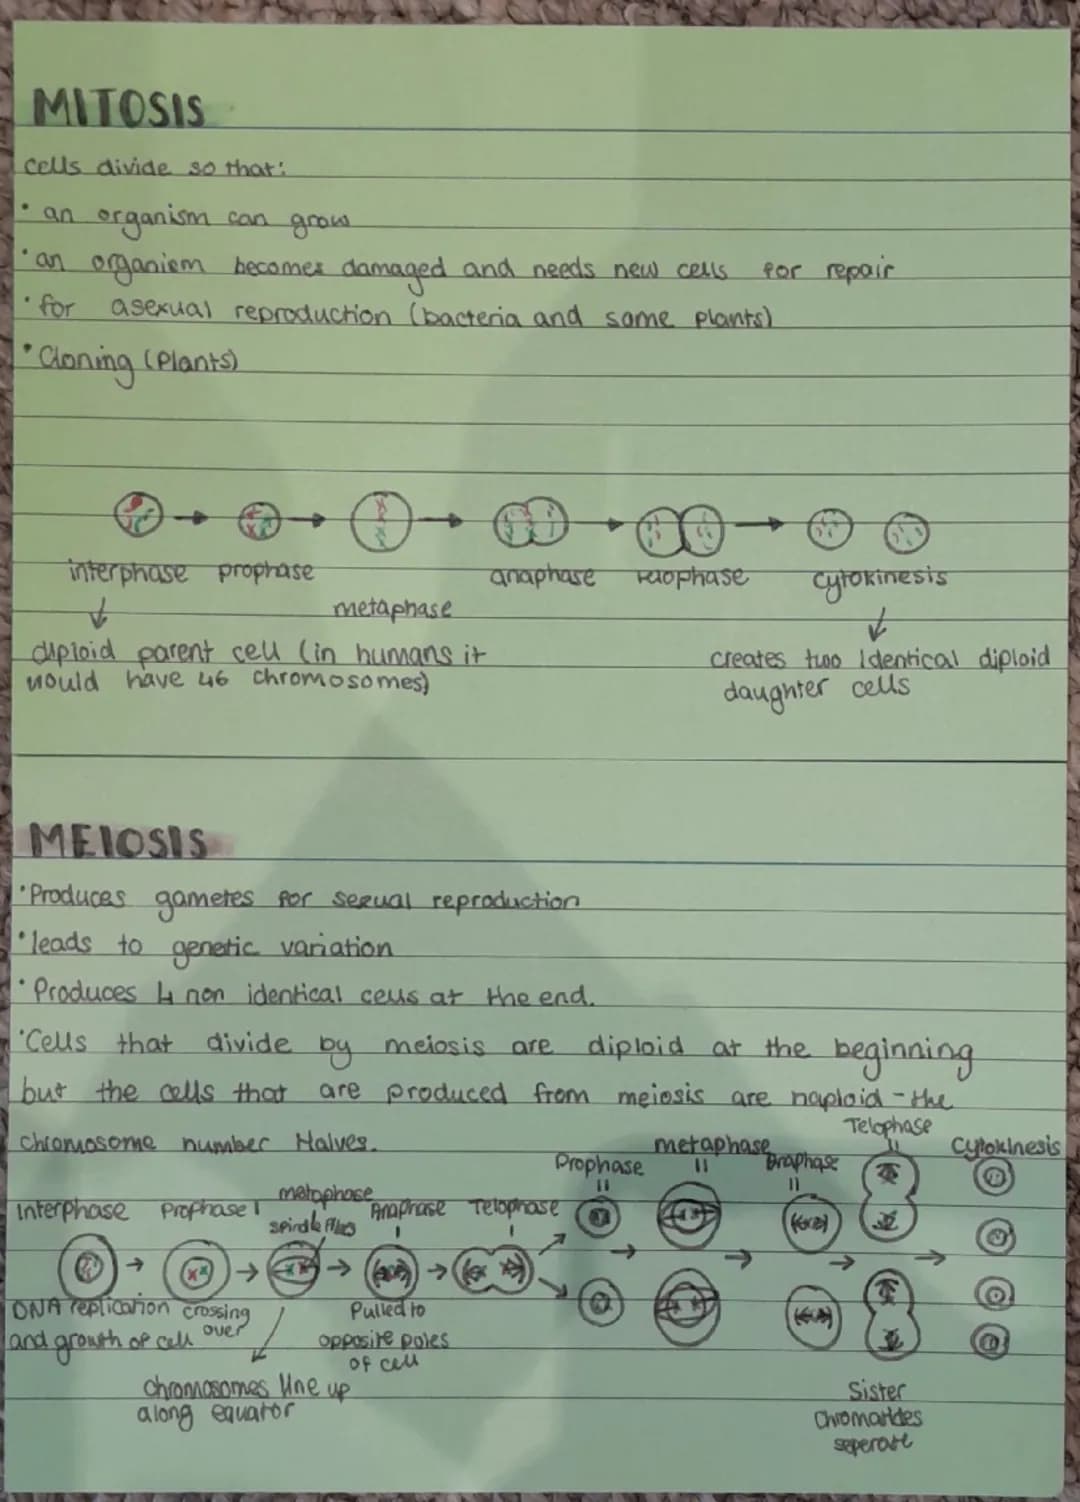 MITOSIS
cells divide so that:
• an organism can grow
• an organism becomes damaged and needs new cells for repair
• for asexual reproduction (bacteria and some plants)
• Cloning (Plants)
interphase prophase anaphase telophase cytokinesis
metaphase
diploid parent cell (in humans it
would have 46 chromosomes)
creates two identical diploid
daughter cells
MEIOSIS
• Produces gametes for sexual reproduction
• leads to genetic variation
• Produces 4 non identical cells at the end.
• Cells that divide by meiosis are diploid at the beginning
but the cells that are produced from meiosis are haploid - the
chromosome number Halves.
Interphase Prophase 1 metaphase Anaphase Telophase Prophase metaphase Anaphase Telophase Cytokinesis
DNA replication
and growth of cell
crossing
over
Pulled to
opposite poles
of cell
chromosomes line up
along equator
Sister
chromatides
seperate